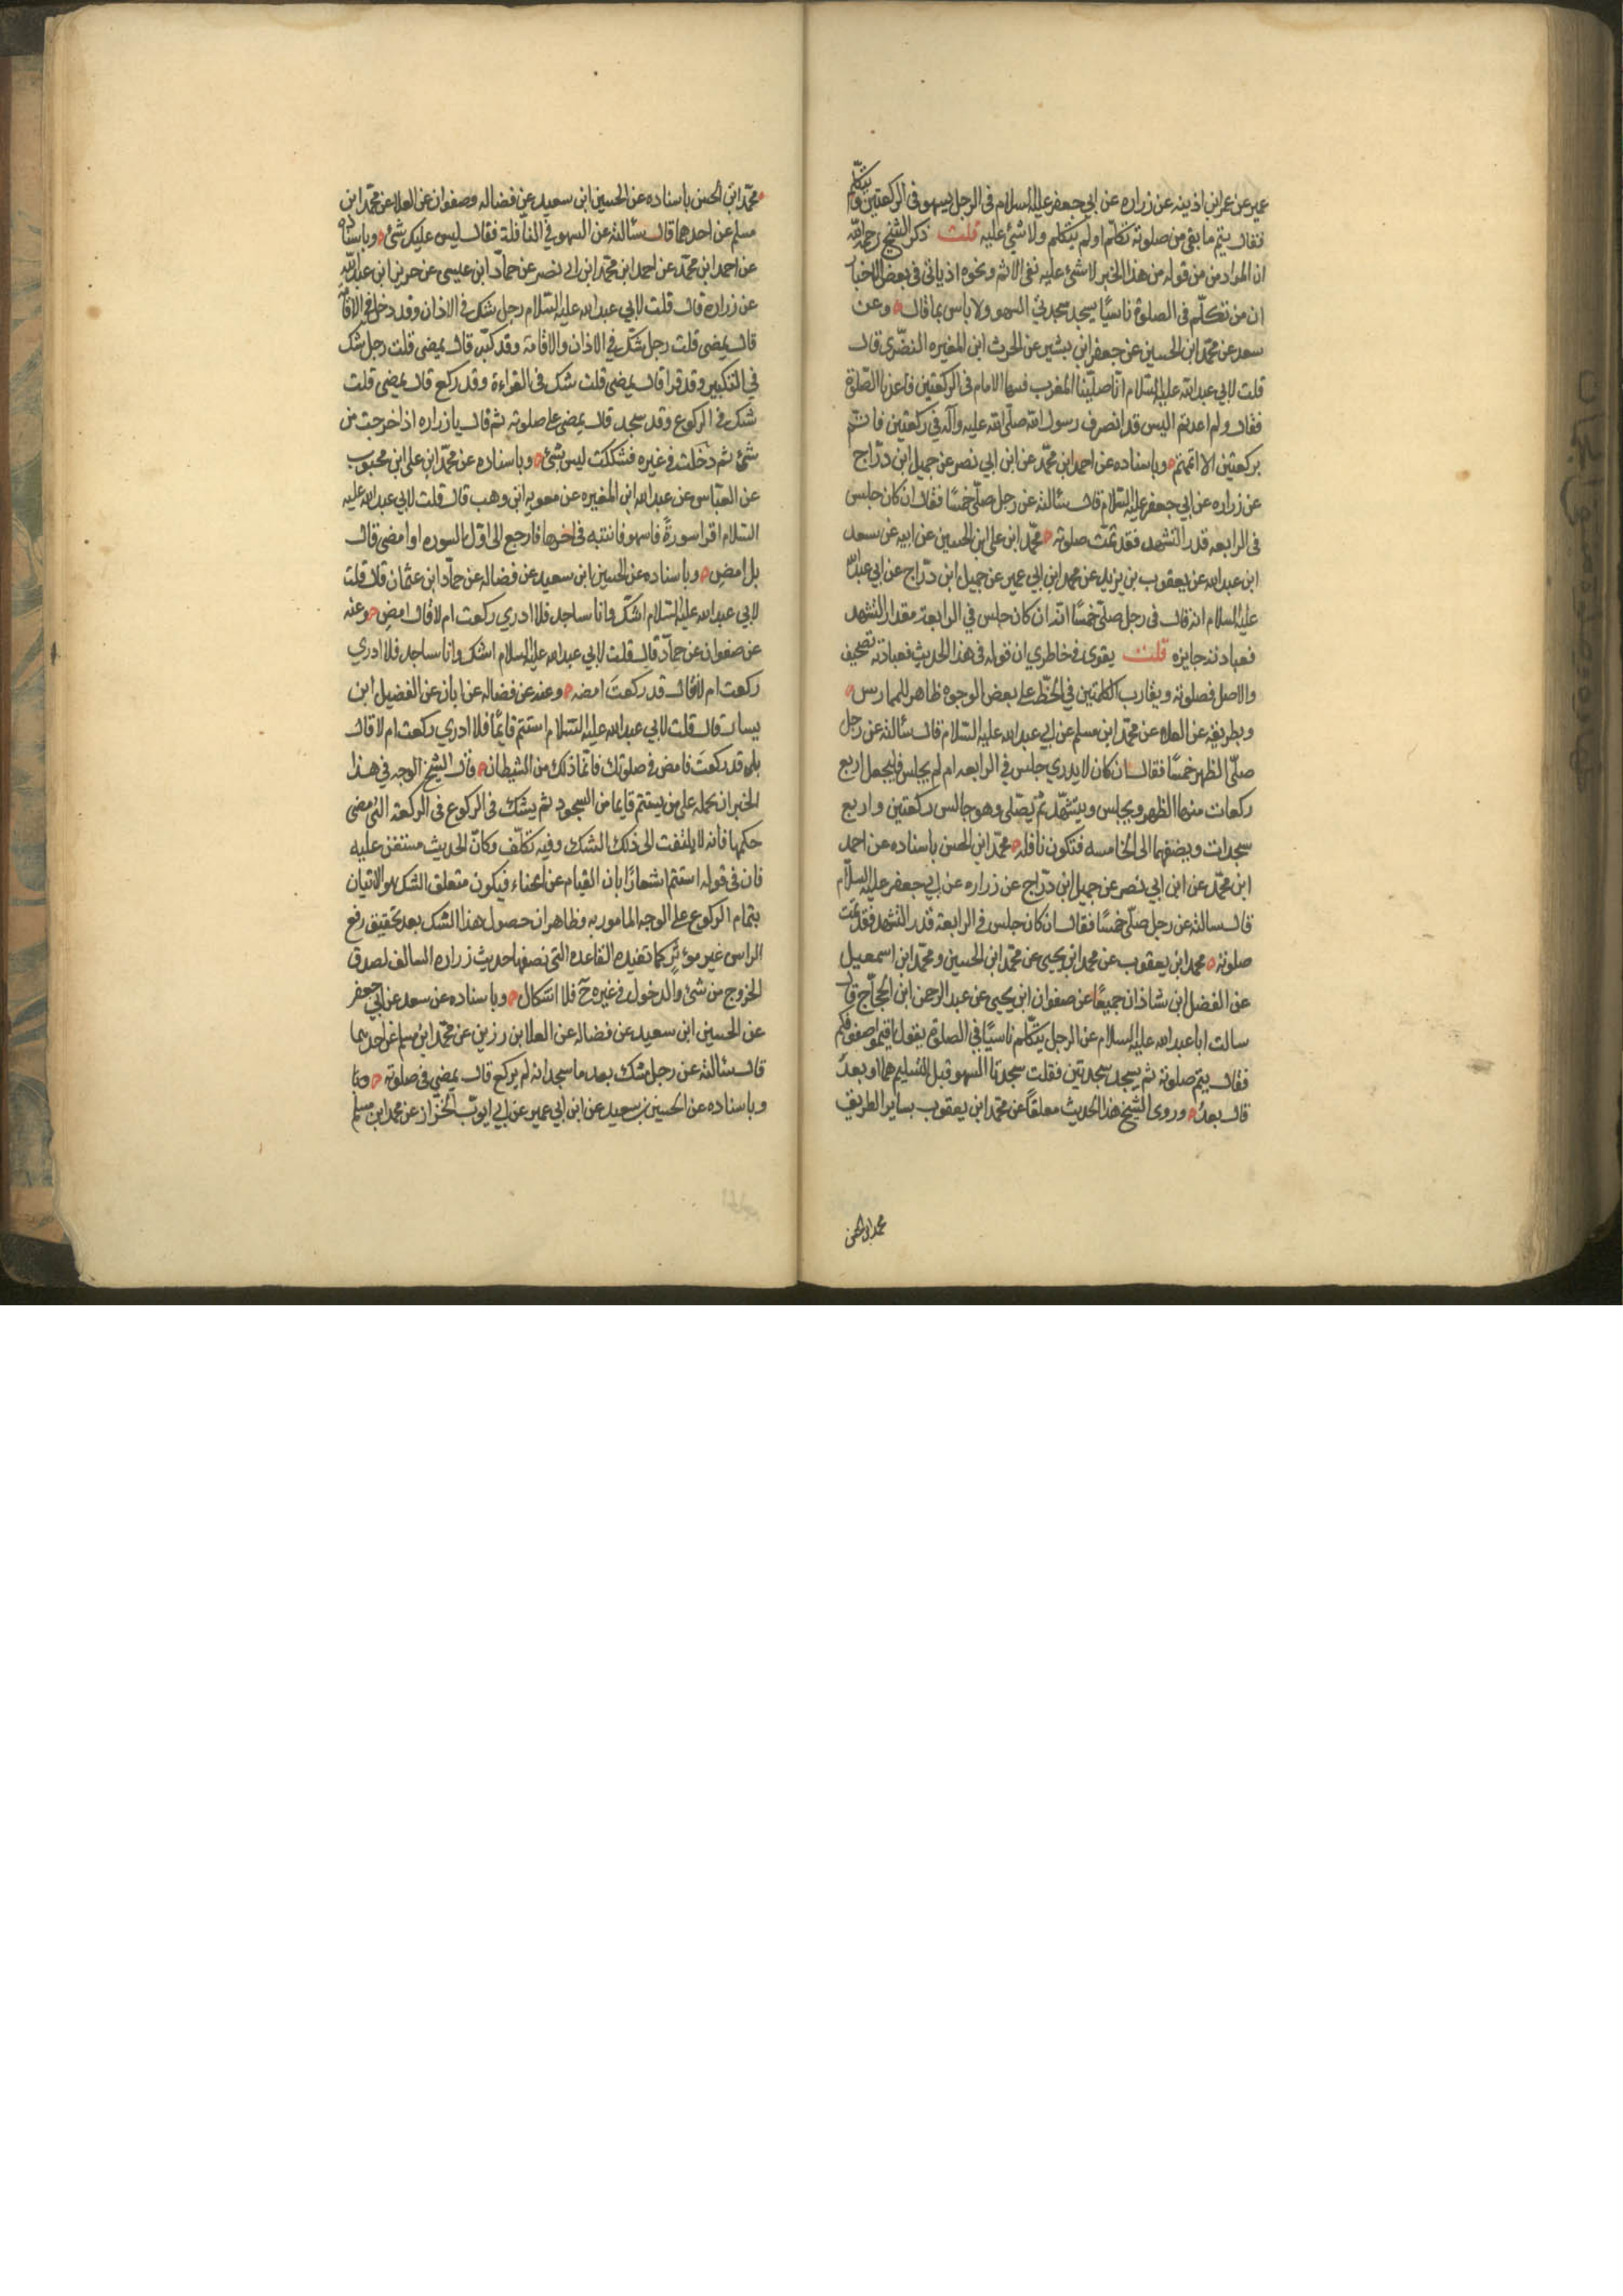 عمير عن عمر ابن اذينه عن زراره عن ابي جعفر عليه السلام في الرجل يسهو في الركعتين ويتكلم
فقال يتم ما بقي من صلوته تكلم او لم يتكلم ولا شئ عليه قلت ذكر الشيخ رحمه الله
ان المراد من من قوله من هذا الخبر لا شئ عليه نفي الاثم ونحوه اذ ياتي في بعض الاخبار
ان من تكلم في الصلوة ناسيًا يسجد سجدتي السهو ولا باس بما قال وعن
سعد عن محمد ابن الحسين عن جعفر ابن بشير عن الحرث ابن المغيره النضري قال
قلت لابي عبد الله عليه السلام انا صلينا المغرب فسها الامام في الركعتين فاعدنا الصلوة
فقال ولم اعدتم اليس قد انصرف رسول الله صلى الله عليه وآله في ركعتين فاتم
بركعتين الا اتممتم وباسناده عن احمد ابن محمد عن ابن ابي نصر عن جميل ابن دراج
عن زراره عن ابي جعفر عليه السلام قال سئالته عن رجل صلى خمسًا فقال ان كان جلس
في الرابعه قدر التشهد فقد تمت صلوته محمد ابن علي ابن الحسين عن ابيه عن سعد
ابن عبد الله عن يعقوب بن يزيد عن محمد ابن ابي عمير عن جميل ابن دراج عن ابي عبد الله
عليه السلام انه قال في رجل صلى خمسًا انه ان كان جلس في الرابعة مقدار التشهد
فعبادته جايزه قلت يقوى في خاطري ان قوله في هذا الحديث فعبادته تصحيف
والاصل فصلوته ويقارب الكلمتين في الخط على بعض الوجوه ظاهر للممارس
وبطريقه عن العلاء عن محمد ابن مسلم عن ابي عبد الله عليه السلام قال سئالته عن رجل
صلى الظهر خمسًا فقال ان كان لا يدري جلس في الرابعه ام لم يجلس فليجعل اربع
ركعات منها الظهر ويجلس ويتشهد ثم يصلي وهو جالس ركعتين واربع
سجدات ويضفهما الى الخامسه فتكون نافله محمد ابن الحسن باسناده عن احمد
ابن محمد عن ابن ابي نصر عن جميل ابن دراج عن زراره عن ابي جعفر عليه السلام
قال سالته عن رجل صلى خمسًا فقال ان كان جلس في الرابعة قدر التشهد فقد تمت
صلوته محمد ابن يعقوب عن محمد ابن يحيى عن محمد ابن الحسين ومحمد ابن اسمعيل
عن الفضل ابن شاذان جميعًا عن صفوان ابن يحيى عن عبد الرحمن ابن الحجاج قال
سالت ابا عبد الله عليه السلام عن الرجل يتكلم ناسيًا في الصلوة يقول اقيموا صفوفكم
فقال يتم صلوته ثم يسجد سجدتين فقلت سجدتا السهو قبل التسليم هما او بعد
قال بعد وروى الشيخ هذا الحديث معلقاً عن محمد ابن يعقوب بساير الطريق
محمد ابن الحسن
محمد ابن الحسن باسناده عن الحسين ابن سعيد عن فضاله وصفوان عن العلا عن محمد ابن
مسلم عن احدهما قال سئالته عن السهو في النافلة فقال ليس عليك شئ وباسناده
عن احمد ابن محمد عن احمد ابن محمد ابن ابي نصر عن حماد ابن عيسى عن حريز ابن عبد الله
عن زراره قال قلت لابي عبد الله عليه السلام رجل شك في الاذان وقد دخل في الاقامة
قال يمضي قلت رجل شك في الاذان والاقامة وقد كبر قال يمضي قلت رجل شك
في التكبير وقد قرا قال يمضي قلت شك في القراءة وقد ركع قال يمضي قلت
شك في الركوع وقد سجد قال يمضي على صلوته ثم قال يا زراره اذا خرجت من
شئ ثم دخلت في غيره فشككت ليس بشئ وباسناده عن محمد ابن علي ابن محبوب
عن العباس عن عبد الله ابن المغيره عن معويه ابن وهب قال قلت لابي عبد الله عليه
السلام اقرا سورةً فاسهو فانتبه في اخرها فارجع الى اول السوره او امضي قال
بل امض وباسناده عن الحسين ابن سعيد عن فضاله عن حماد ابن عثمان قال قلت
لابي عبد الله عليه السلام اشك وانا ساجد فلا ادري ركعت ام لا قال امض وعنه
عن صفوان عن حماد قال قلت لابي عبد الله عليه السلام اشك وانا ساجد فلا ادري
ركعت ام لا فقال قد ركعت امضه وعنه عن فضاله عن ابان عن الفضيل ابن
يسار قال قلت لابي عبد الله عليه السلام استتم قايمًا فلا ادري ركعت ام لا قال
بلى قد ركعت فامض في صلوتك فانما ذلك من الشيطان قال الشيخ الوجه في هذا
الخبر ان نحمله على من يستتم قايما من السجود ثم يشك في الركوع في الركعة التي مضى
حكمها فانه لا يلتفت الى ذلك الشك وفيه تكلف وكان الحديث مستغن عليه
فان في قوله استتم اشعارًا بان القيام عن انحناء فيكون متعلق الشك هو الاتيان
بتمام الركوع على الوجه المامور به وظاهر ان حصول هذا الشك بعد تحقيق رفع
الراس غير موثر كما تفيده القاعده التي تضمنها حديث زراره السالف لصدق
الخروج من شئ والدخول في غيره ح فلا اشكال وباسناده عن سعد عن ابي جعفر
عن الحسين ابن سعيد عن فضاله عن العلا بن رزين عن محمد ابن مسلم عن احدهما
قال سئالته عن رجل شك بعد ما سجد انه لم يركع قال يمضي في صلوته
وباسناده عن الحسين بن سعيد عن ابن ابي عمير عن ابي ايوب الخزاز عن محمد ابن مسلم